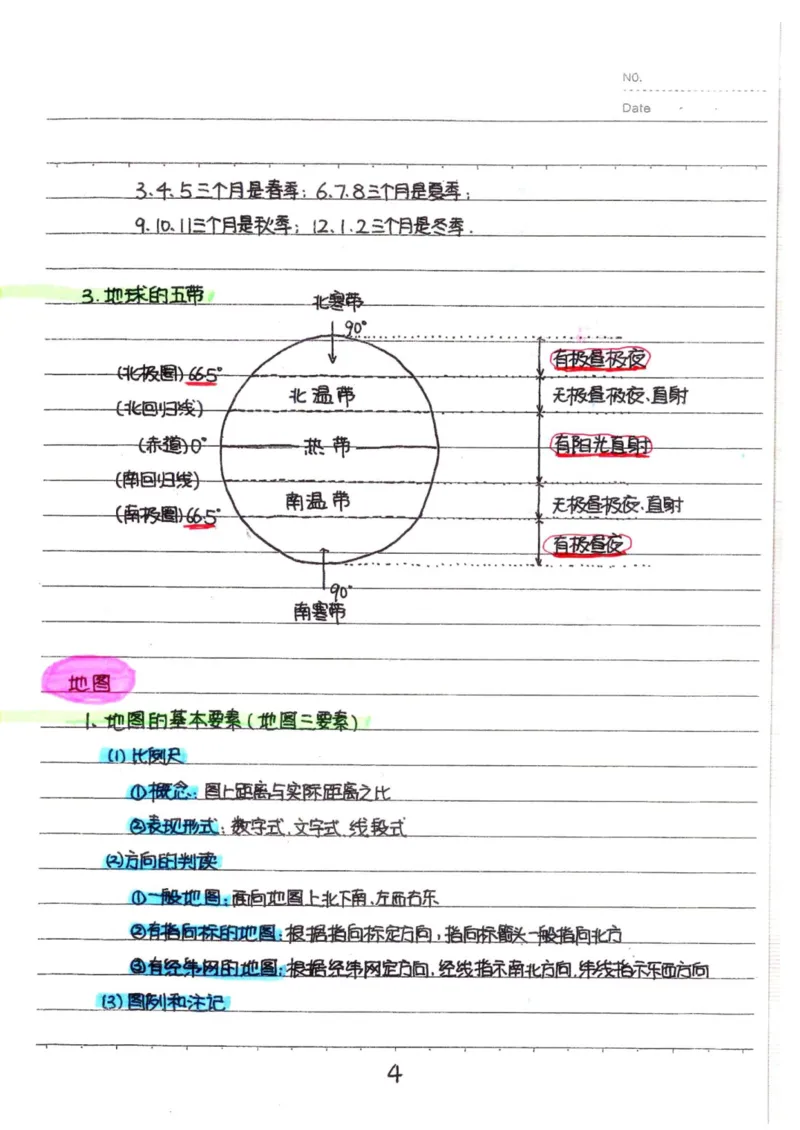 NO.
Date - -
3、4、5三个月是春季；6、7、8三个月是夏季；
9、10、11三个月是秋季；12、1、2三个月是冬季.
3.地球的五带
北寒带
90°
有极昼极夜
(北极圈)66.5°
北温带
无极昼极夜、直射
(北回归线)
(赤道)0°
热带
有阳光直射
(南回归线)
南温带
无极昼极夜、直射
(南极圈)66.5°
有极昼夜
90°
南寒带
地图
1、地图的基本要素(地图三要素)
(1)比例尺
①概念：图上距离与实际距离之比
②表现形式：数字式、文字式、线段式
(2)方向的判读
①一般地图：面向地图上北下南、左西右东
②有指向标的地图：根据指向标定方向，指向标箭头一般指向北方
③有经纬网的地图：根据经纬网定方向，经线指示南北方向，纬线指示东西方向
(3)图例和注记
4